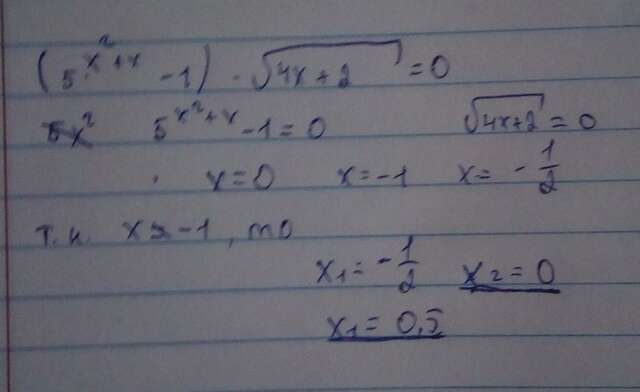 (5^{x²+x} - 1) · √(4x+2) = 0
5^{x²+x} - 1 = 0 √(4x+2) = 0
x = 0 x = -1 x = -1/2
т.к. x ≥ -1, то
x₁ = -1/2 x₂ = 0
x₁ = 0,5